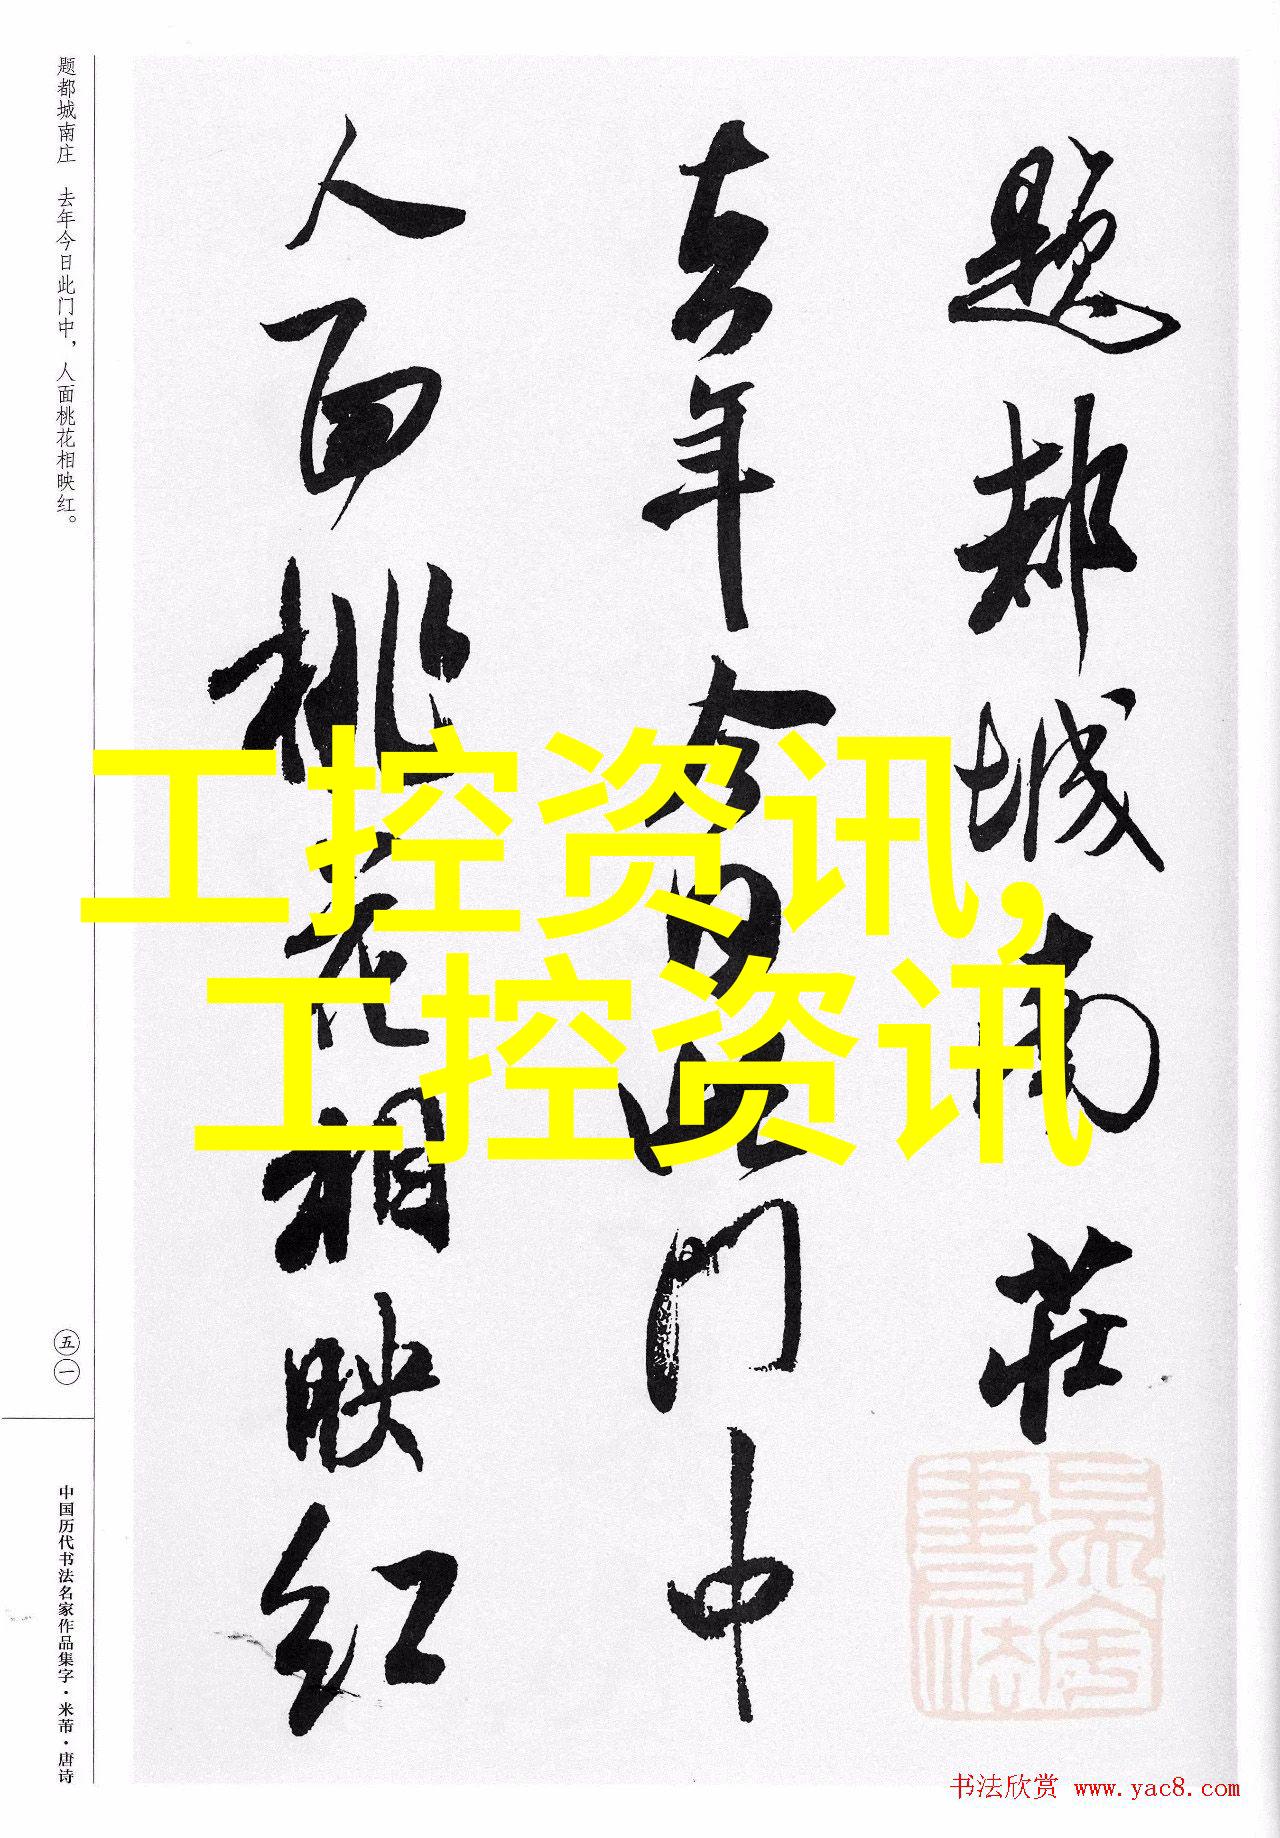 题都城南庄　去年今日此门中，人面桃花相映红。
題都城南莊
去年今日此門中
人面桃花相映紅
工控资讯，
工控资讯
五一
中国历代书法名家作品集字·米芾·唐诗
书法欣赏 www.yac8.com